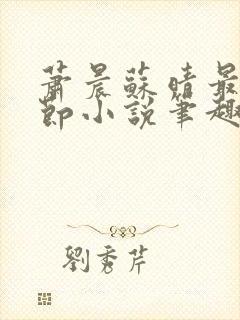 蕭晨蘇晴最
節小說筆趣
劉秀芹